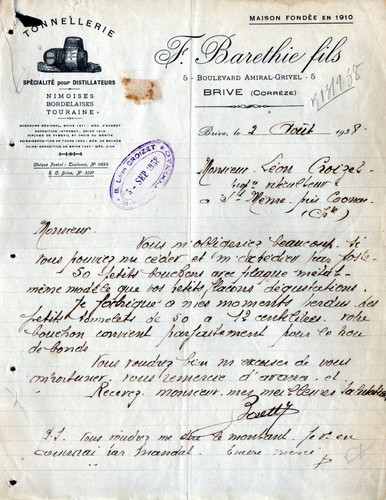 MAISON FONDÉE EN 1910
TONNELLERIE
SPÉCIALITÉ pour DISTILLATEURS
NIMOISES
BORDELAISES
TOURAINE
F. Barethie fils
5 - BOULEVARD AMIRAL-GRIVEL - 5
BRIVE (CORRÈZE)
Brive, le 2 Août 1938
B. Léon CROIZET
5 SEP 1938
Monsieur Léon Croizet
St Même près Cognac
Monsieur
Vous m'obligeriez beaucoup si
vous pouviez me céder et m'expédier par poste
50 petits bouchons avec plaque métal
même modèle que vos petits flacons dégustations.
Je fabrique a mes moments perdus des
petits tonnelets de 50 a 12 centilitres. votre
bouchon convient parfaitement pour le trou
de bonde
Vous voudrez bien m'excuser de vous
importuner, vous remercie d'avance et
Recevez monsieur mes meilleures salutations
P.S. Vous voudrez me dire le montant. Je vs en
couvrirai par mandat. Encore merci